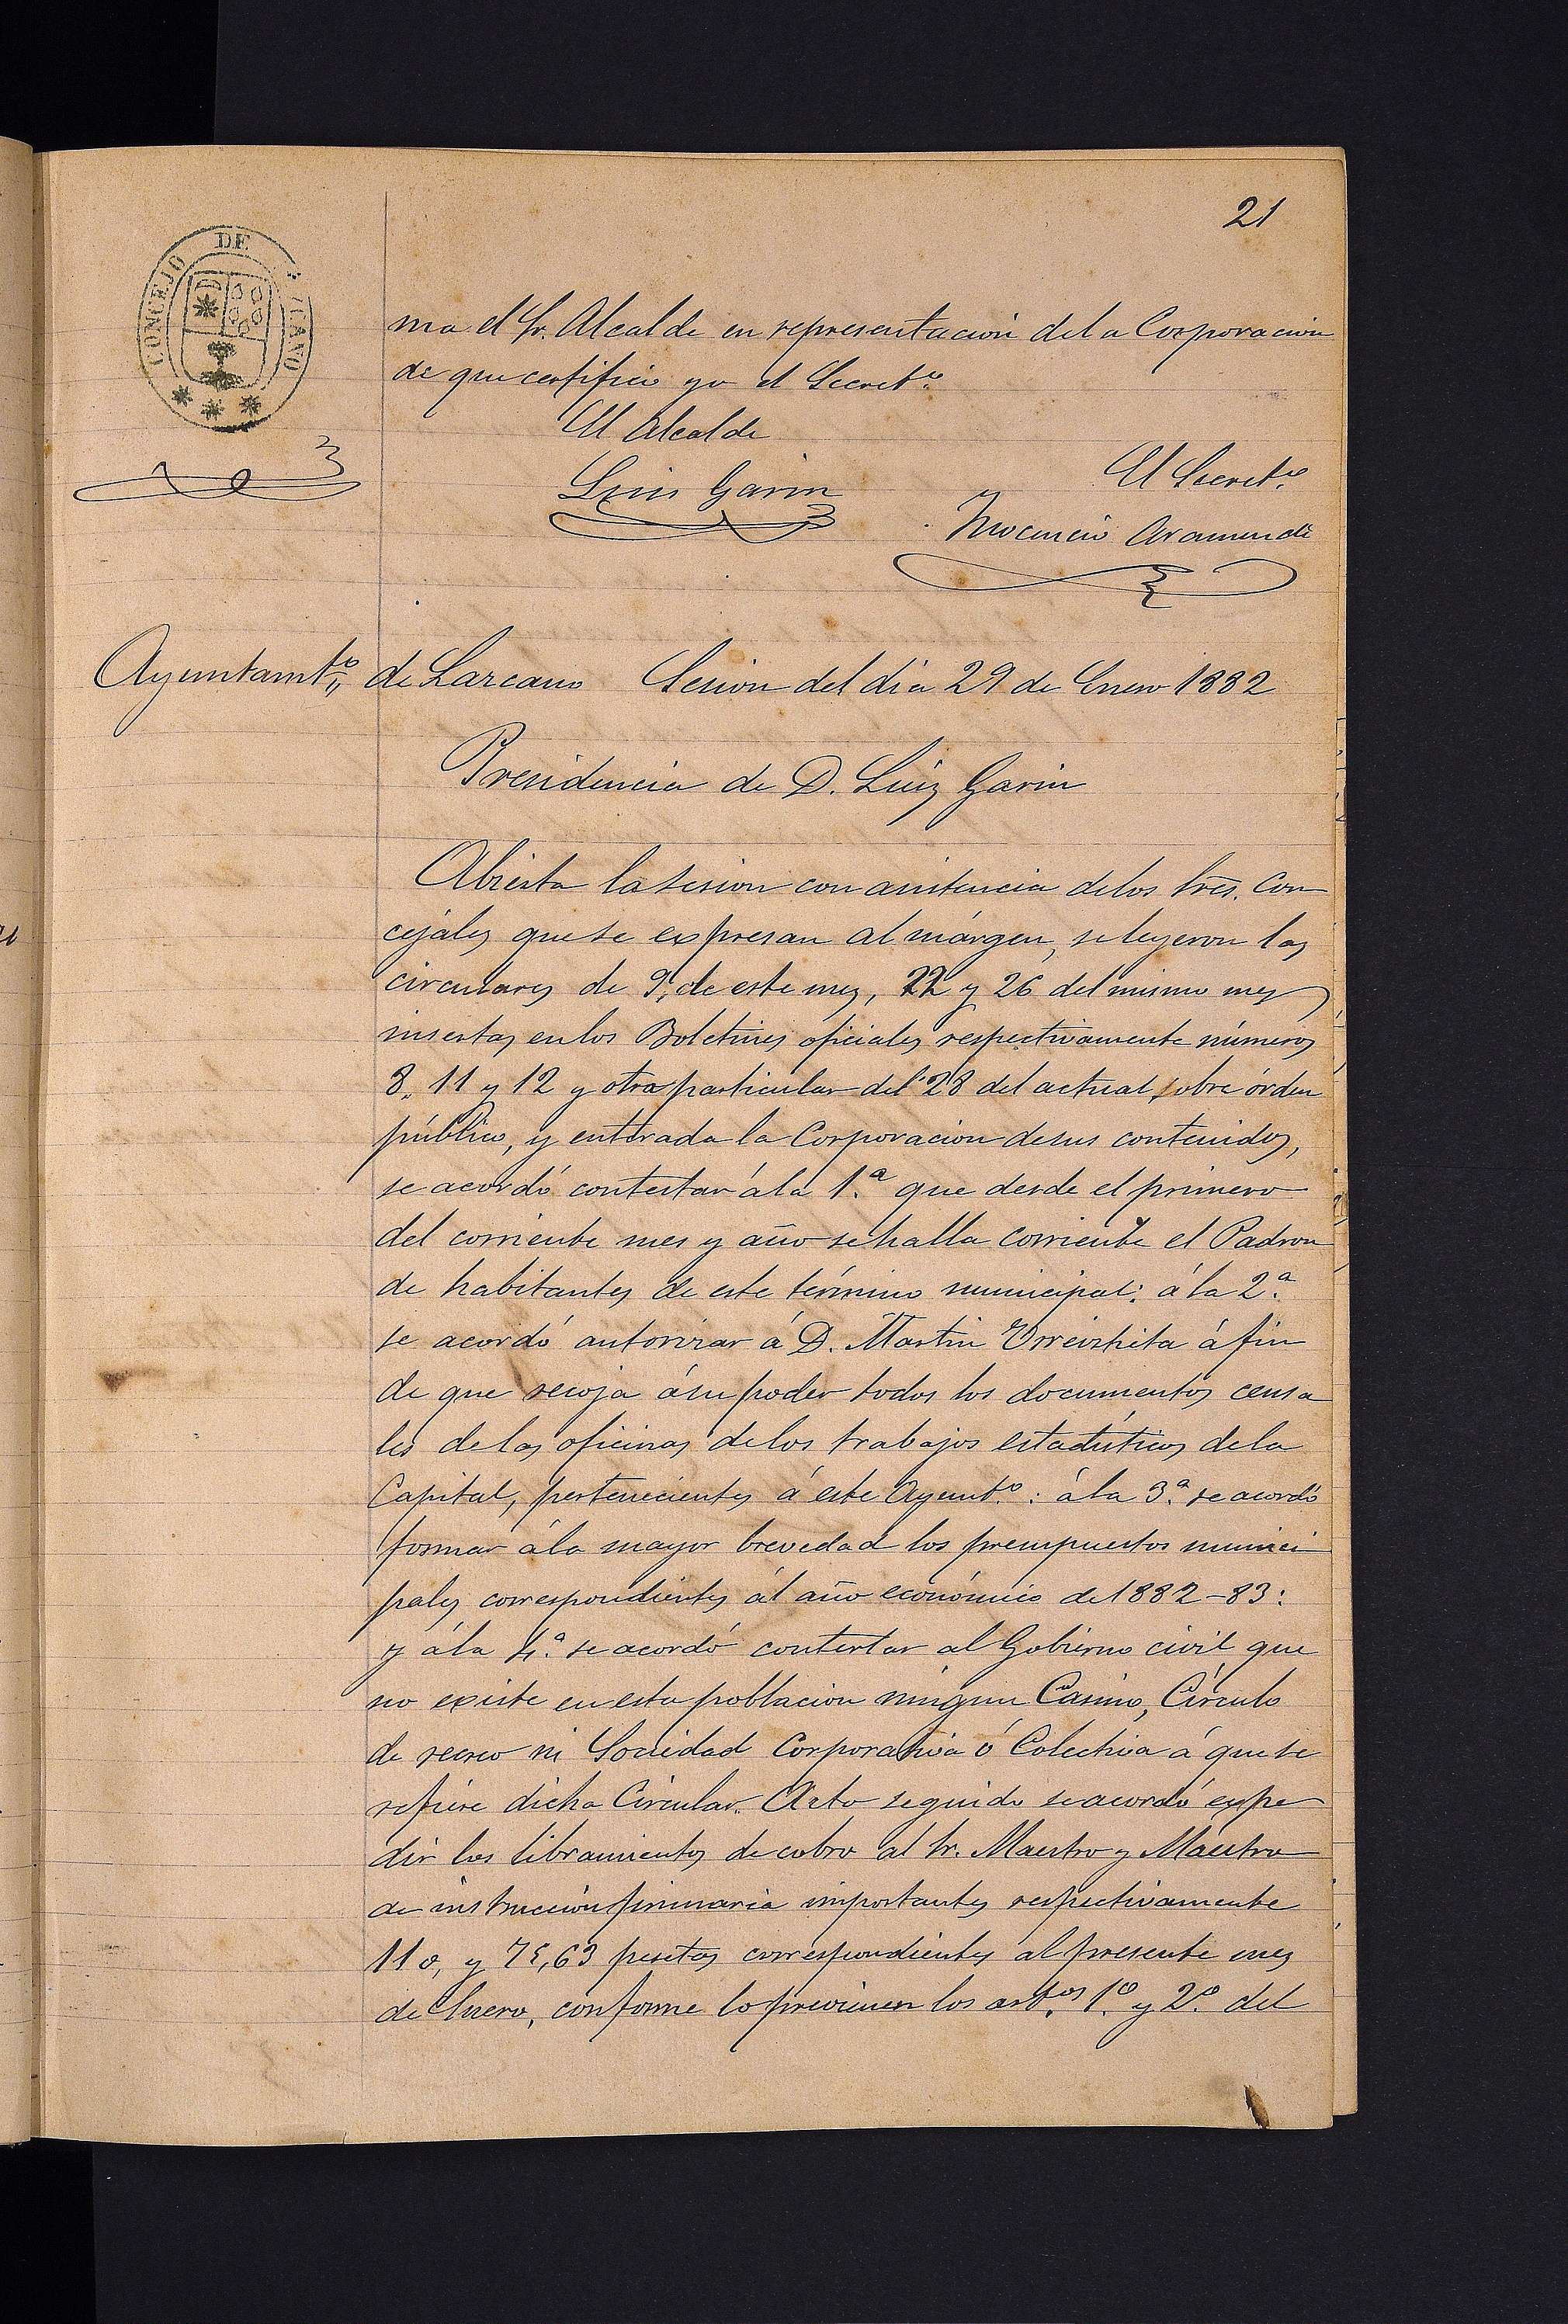 21
CONCEJO DE
ma el Sr. Alcalde en representación de la Corporación
de que certifico yo el Secret.º
El Alcalde
Luis Garin
El Secret.º
Inocencio Aramendi
Ayuntamt.º de Lazcano Sesion del dia 29 de Enero 1882
Presidencia de D. Luis Garin
Abierta la sesion con asistencia de los Sres. Con
cejales que se expresan al márgen, se leyeron las
circulares de 9, de este mes, 22 y 26 del mismo mes
insertas en los Boletines oficiales respectivamente números
8, 11 y 12 y otra particular del 28 del actual sobre órden
público, y enterada la Corporacion de sus contenidos,
se acordó contestar á la 1.ª que desde el primero
del corriente mes y año se halla corriente el Padron
de habitantes de este término municipal: á la 2.ª
se acordó autorizar á D. Martin Urreizhita á fin
de que recoja á su poder todos los documentos censa
les de las oficinas de los trabajos estadísticos de la
Capital, pertenecientes á este Ayunt.º: á la 3.ª se acordó
formar á la mayor brevedad los presupuestos munici
pales correspondientes ál año económico de 1882-83:
y á la 4.ª se acordó contestar al Gobierno civil que
no existe en esta poblacion ningun Casino, Círculo
de recreo ni Sociedad Corporativa ó Colectiva á que se
refiere dicha Circular. Acto seguido se acordó expe
dir los libramientos de cobro al Sr. Maestro y Maestra
de instruccion primaria importantes respectivamente
110, y 75,63 pesetas correspondientes al presente mes
de Enero, conforme lo previenen los art.os 1.º y 2.º del